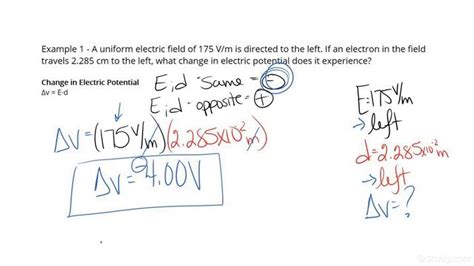 Example 1 - A uniform electric field of 175 V/m is directed to the left. If an electron in the field
travels 2.285 cm to the left, what change in electric potential does it experience?
Change in Electric Potential
Δv = E·d
E;d - same = ⊖
E;d - opposite = ⊕
ΔV = (175 V/m)(2.285x10⁻² m)
ΔV = -4.00V
E: 175 V/m
→ left
d = 2.285x10⁻² m
→ left
ΔV = ?
Study.com